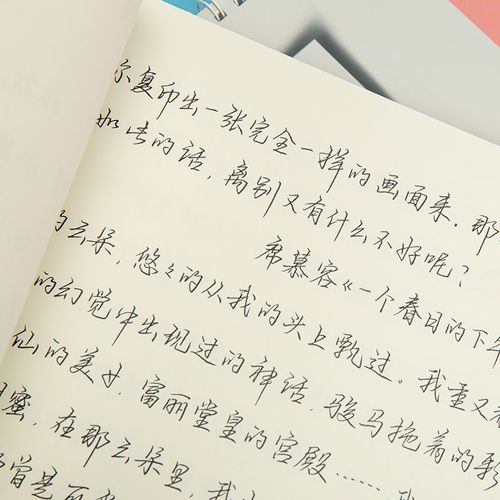 尔复印出一张完全一样的画面来．那
如此的话，离别又有什么不好呢？
席慕容《一个春日的下午
的云朵，悠々的从我的头上飘过。我重又
的幻觉中出现过的神话．骏马拖着的
仙的美女，富丽堂皇的宫殿……
蜜，在那云朵里，我
曾是